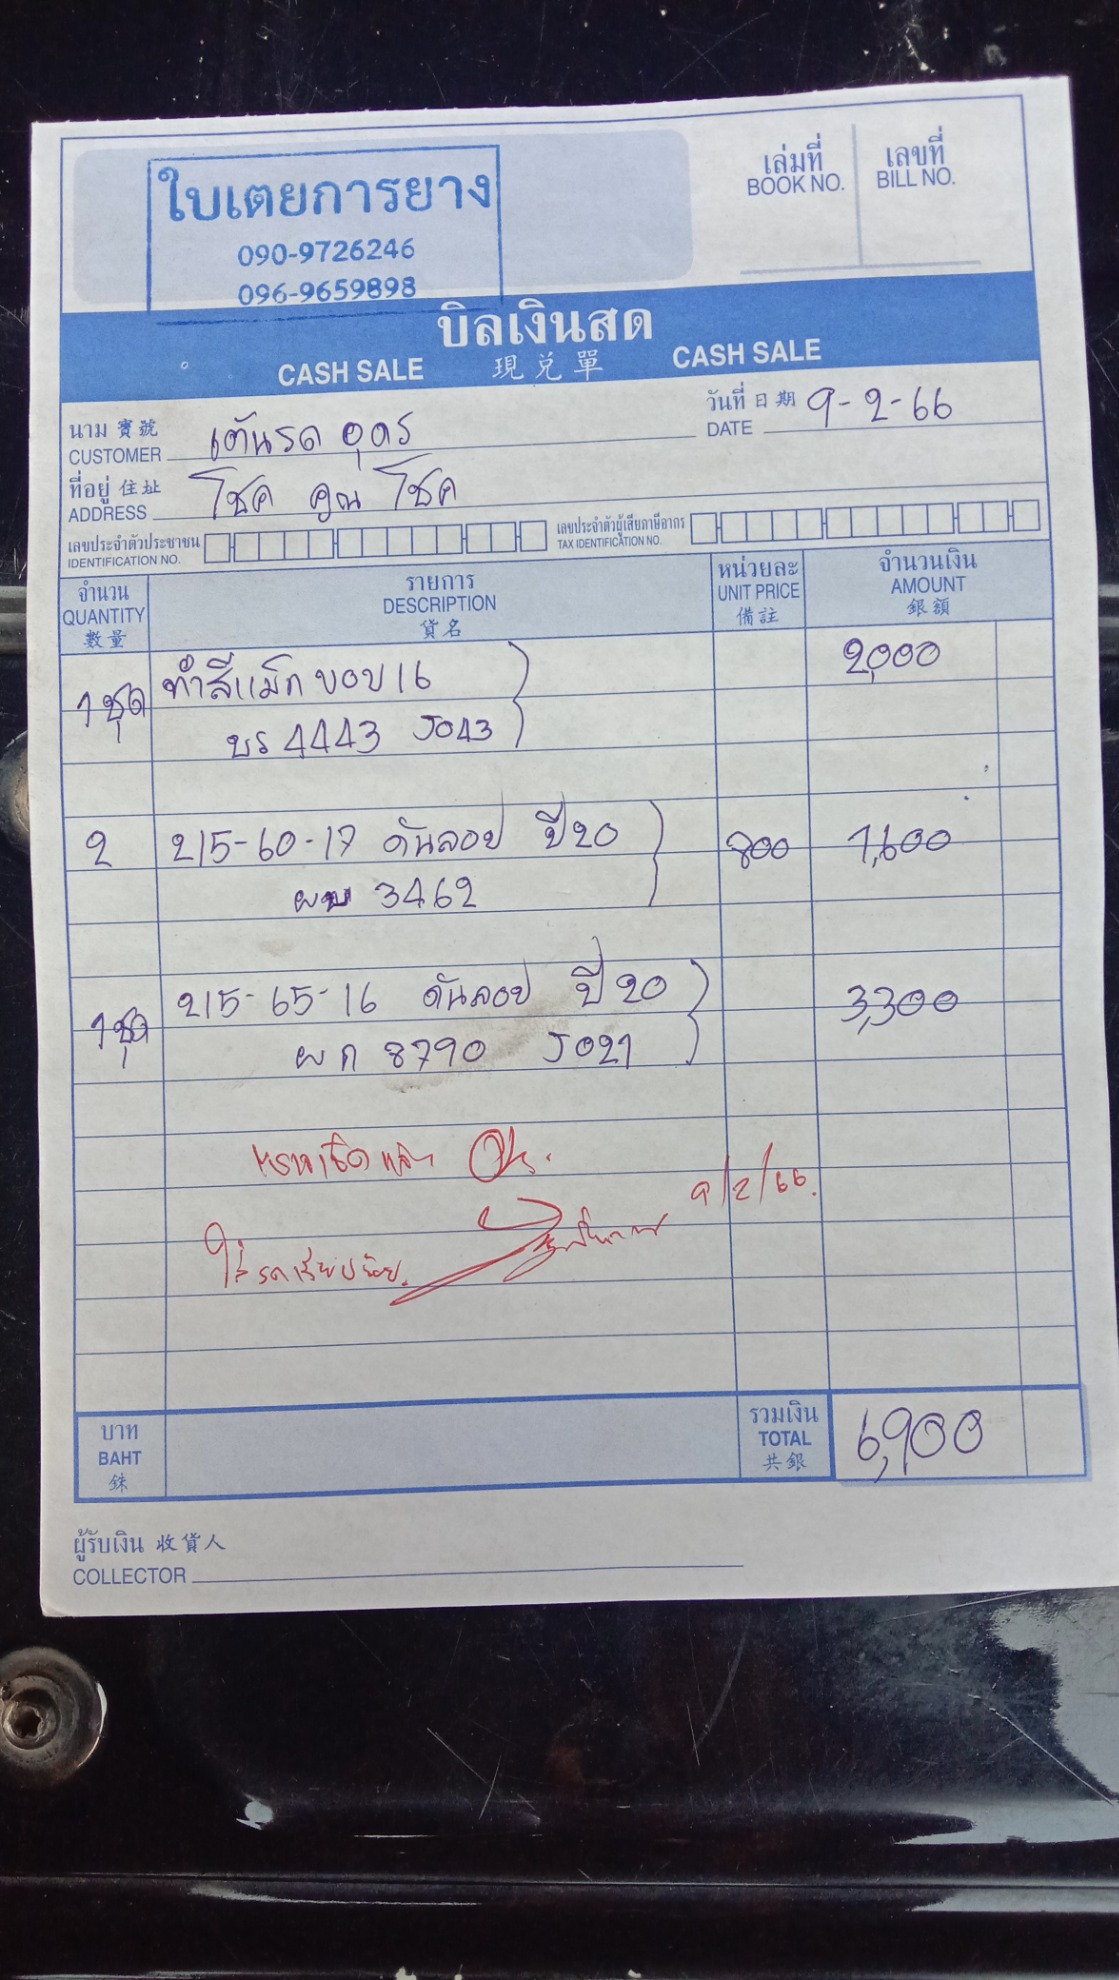 ใบเตยการยาง
090-9726246
096-9659898
เล่มที่ เลขที่
BOOK NO. BILL NO.
บิลเงินสด
CASH SALE 現兌單 CASH SALE
นาม 寶號 เต้นรถ อุดร
CUSTOMER
วันที่ 日期 9-2-66
DATE
ที่อยู่ 住址 โชค คูณ โชค
ADDRESS
เลขประจำตัวประชาชน
IDENTIFICATION NO.
เลขประจำตัวผู้เสียภาษีอากร
TAX IDENTIFICATION NO.
จำนวน รายการ หน่วยละ จำนวนเงิน
QUANTITY DESCRIPTION UNIT PRICE AMOUNT
數量 貨名 備註 銀額
1 ชุด ทำสีแม็ก ขอบ 16 2,000
บร 4443 J043
2 215-60-17 ดันลอป ปี 20 800 1,600
ผบ 3462
1 ชุด 215-65-16 ดันลอป ปี 20 3,300
ผก 8790 J021
9/2/66.
บาท รวมเงิน
BAHT TOTAL 6,900
銖 共銀
ผู้รับเงิน 收貨人
COLLECTOR